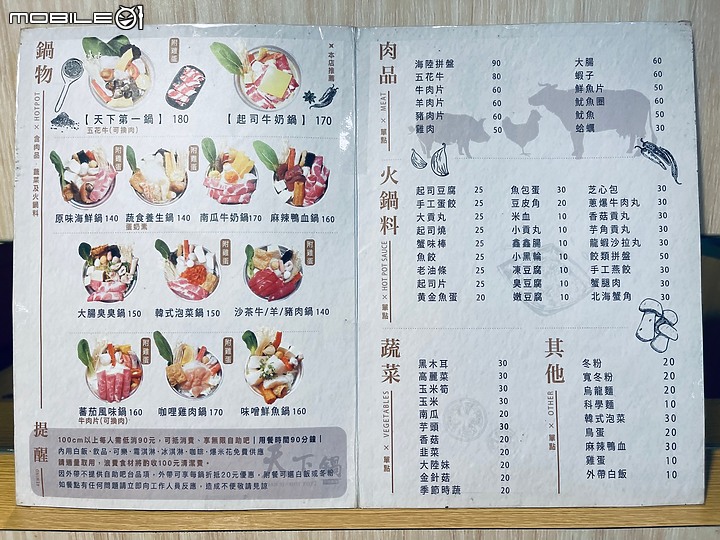 mobile01
鍋物
HOTPOT × 含肉品 蔬菜及火鍋料
附雞蛋
×本店推薦×
【天下第一鍋】180
五花牛(可換肉)
【起司牛奶鍋】170
附雞蛋
附雞蛋
原味海鮮鍋 140
蔬食養生鍋 140
蛋奶素
南瓜牛奶鍋170
麻辣鴨血鍋 160
附雞蛋
附雞蛋
大腸臭臭鍋 150
韓式泡菜鍋 150
沙茶牛/羊/豬肉鍋 140
附雞蛋
附雞蛋
蕃茄風味鍋 160
牛肉片(可換肉)
咖哩雞肉鍋 170
味噌鮮魚鍋 160
提醒
100cm以上每人需低消90元,可抵消費、享無限自助吧|用餐時間90分鐘|
內用白飯、飲品、可樂、霜淇淋、冰淇淋、咖啡、爆米花免費供應
請適量取用,浪費食材將酌收100元清潔費。
因外帶不提供自助吧台品項,外帶可享每鍋折抵20元優惠,附餐可選白飯或冬粉
如餐點有任何問題請立即向工作人員反應,造成不便敬請見諒
天下鍋
肉品
MEAT × 單點
海陸拼盤 90
五花牛 80
牛肉片 60
羊肉片 60
豬肉片 60
雞肉 50
大腸 60
蝦子 60
鮮魚片 50
魷魚圈 60
魷魚 60
蛤蠣 30
火鍋料
HOT POT SAUCE × 單點
起司豆腐 25
手工蛋餃 25
大貢丸 25
起司燒 25
蟹味棒 25
魚餃 25
老油條 25
起司片 25
黃金魚蛋 20
魚包蛋 30
豆皮角 20
米血 10
小貢丸 10
鑫鑫腸 10
小黑輪 10
凍豆腐 10
臭豆腐 10
嫩豆腐 10
芝心包 30
蔥爆牛肉丸 30
香菇貢丸 30
芋角貢丸 30
龍蝦沙拉丸 30
餃類拼盤 50
手工燕餃 30
蟹腿肉 30
北海蟹角 30
蔬菜
VEGETABLES × 單點
黑木耳 30
高麗菜 30
玉米筍 30
玉米 30
南瓜 20
芋頭 20
香菇 20
韭菜 20
大陸妹 20
金針菇 20
季節時蔬 20
其他
OTHER × 單點
冬粉 20
寬冬粉 20
烏龍麵 20
科學麵 10
韓式泡菜 30
鳥蛋 20
麻辣鴨血 30
雞蛋 10
外帶白飯 10